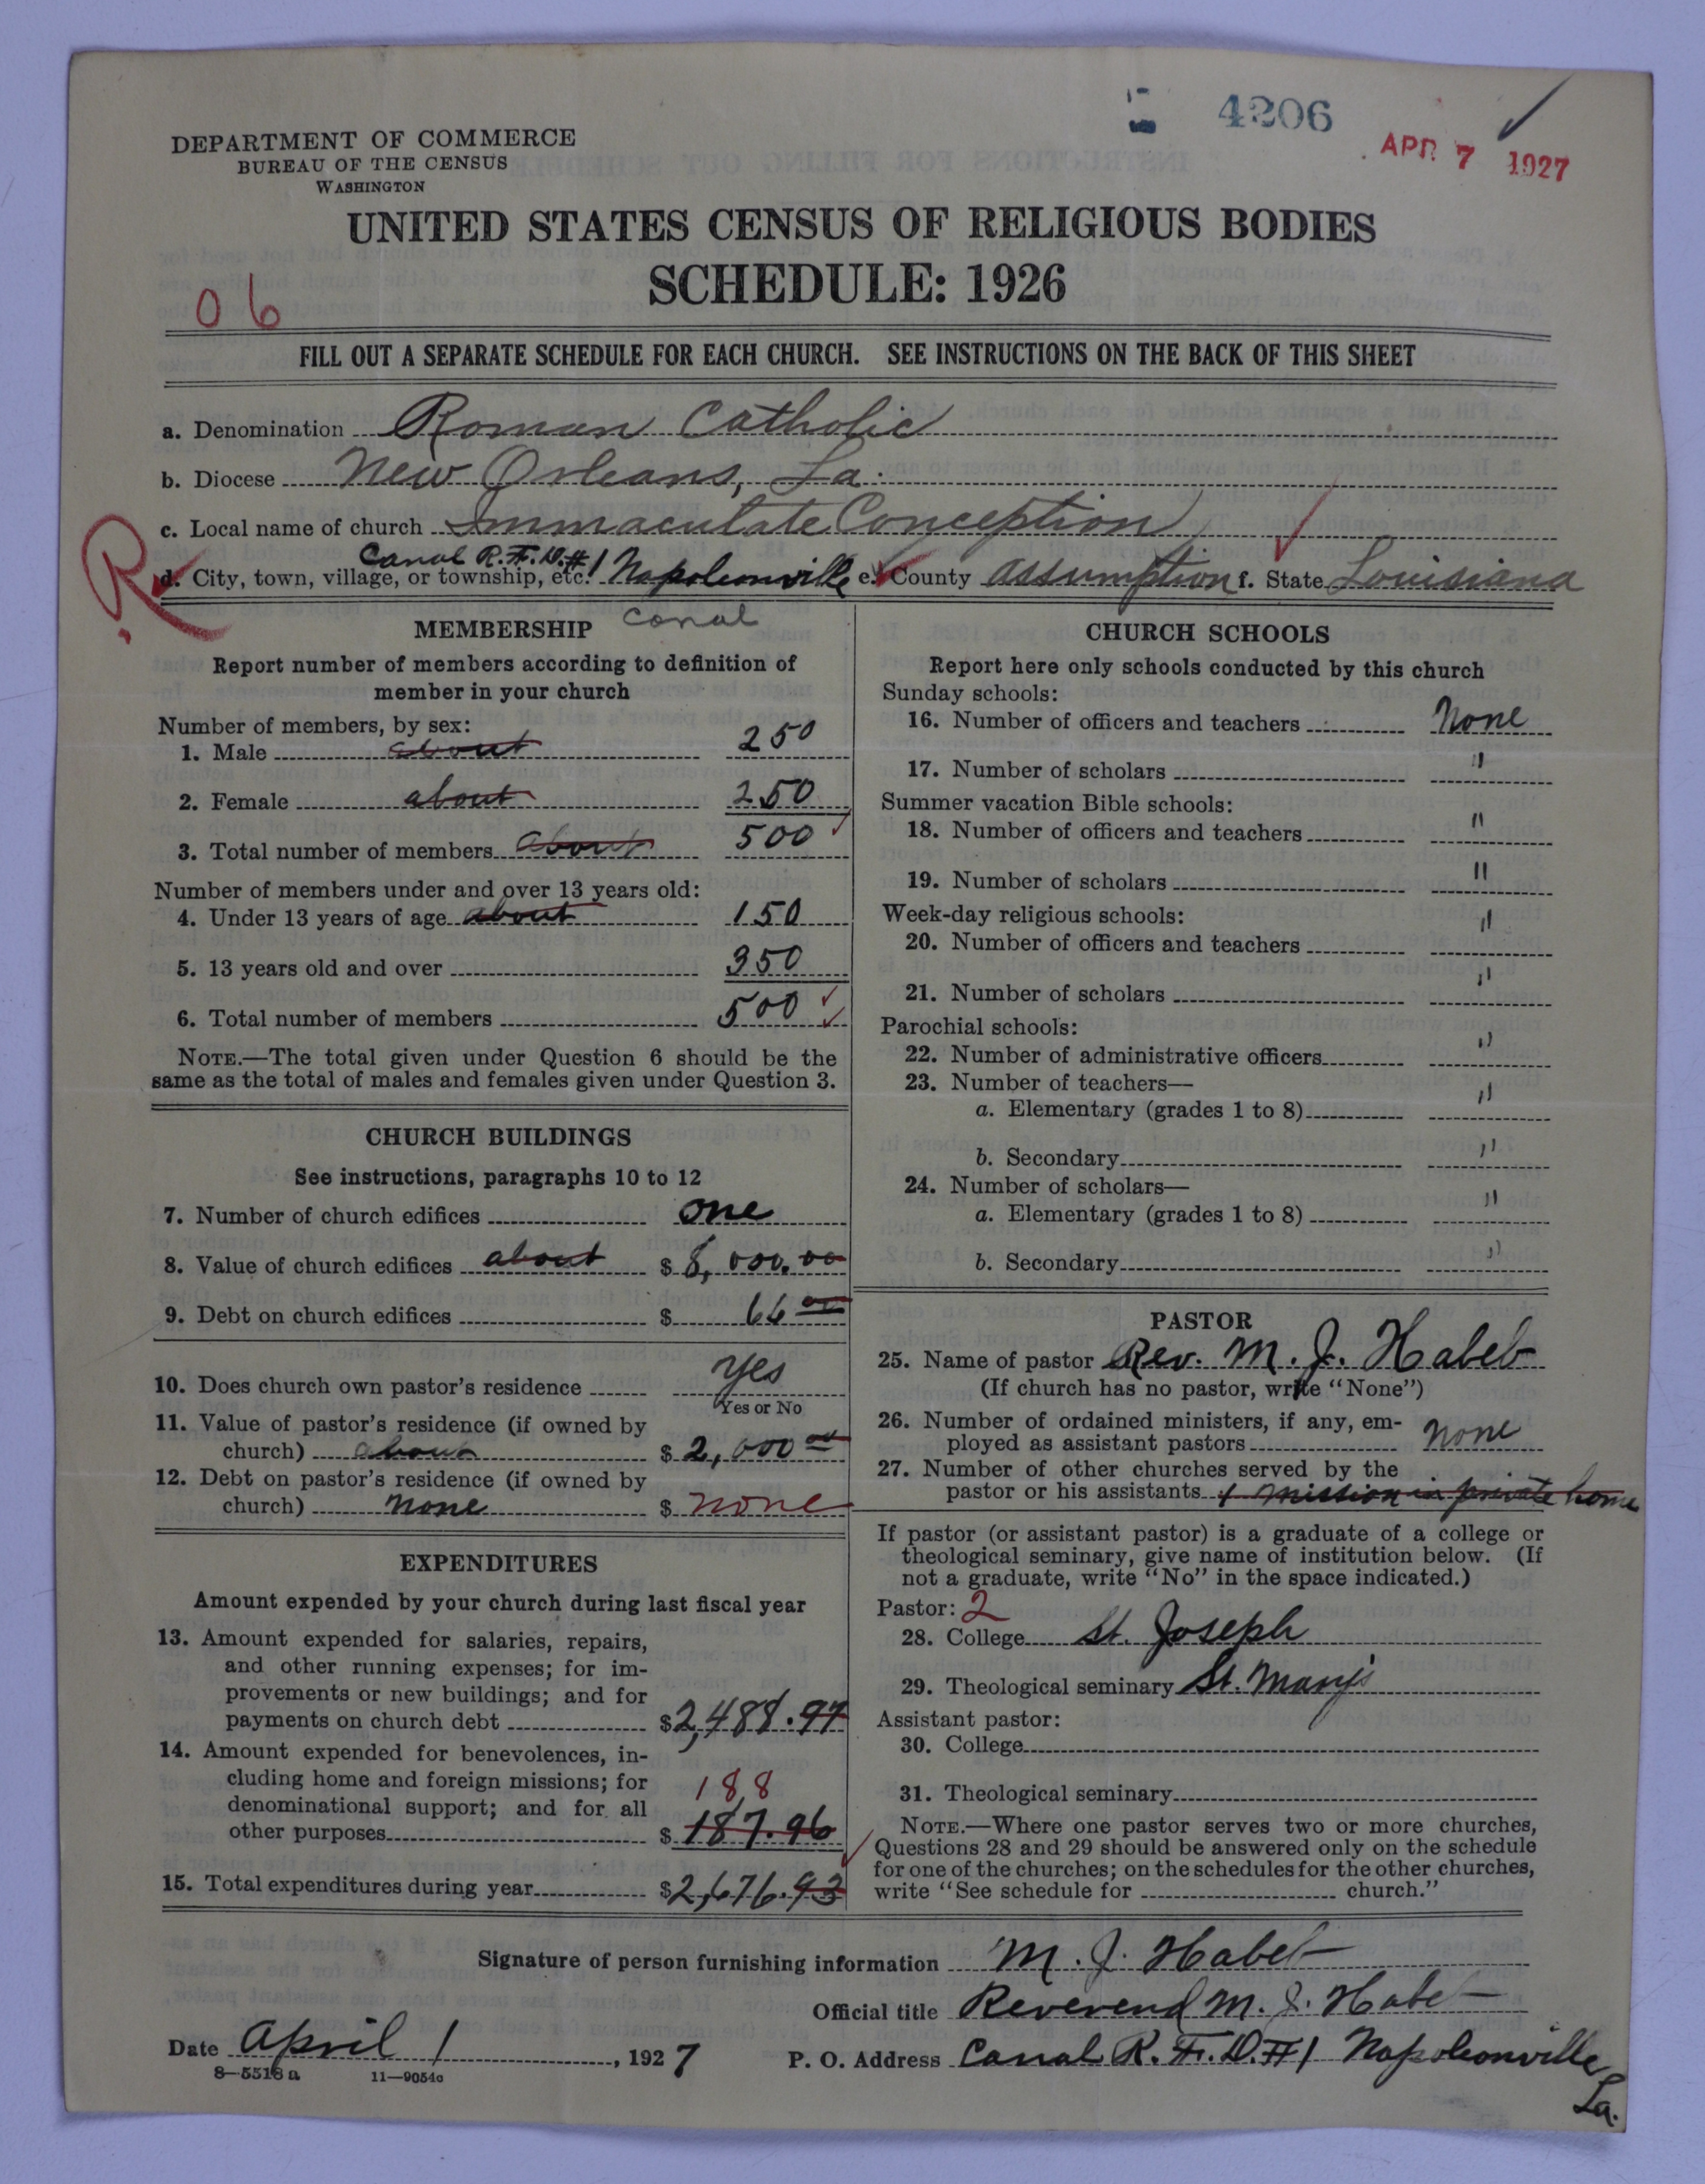 4206
APR 7 1927
DEPARTMENT OF COMMERCE
BUREAU OF THE CENSUS
WASHINGTON
UNITED STATES CENSUS OF RELIGIOUS BODIES
SCHEDULE: 1926
06
FILL OUT A SEPARATE SCHEDULE FOR EACH CHURCH. SEE INSTRUCTIONS ON THE BACK OF THIS SHEET
a. Denomination Roman Catholic
b. Diocese New Orleans, La.
c. Local name of church Immaculate Conception
R
Canal R.F.D.#1
d. City, town, village, or township, etc. Napoleonville e. County Assumption f. State Louisiana
Canal
MEMBERSHIP
Report number of members according to definition of
member in your church
Number of members, by sex:
1. Male about 250
2. Female about 250
3. Total number of members about 500
Number of members under and over 13 years old:
4. Under 13 years of age about 150
5. 13 years old and over 350
6. Total number of members 500
NOTE.—The total given under Question 6 should be the
same as the total of males and females given under Question 3.
CHURCH BUILDINGS
See instructions, paragraphs 10 to 12
7. Number of church edifices one
8. Value of church edifices about $ 8,000.00
9. Debt on church edifices $ 66 00
10. Does church own pastor's residence yes
Yes or No
11. Value of pastor's residence (if owned by
church) about $ 2,000 00
12. Debt on pastor's residence (if owned by
church) none $ none
EXPENDITURES
Amount expended by your church during last fiscal year
13. Amount expended for salaries, repairs,
and other running expenses; for im-
provements or new buildings; and for
payments on church debt $2,488.97
14. Amount expended for benevolences, in-
cluding home and foreign missions; for
denominational support; and for all 188
other purposes $ 187.96
15. Total expenditures during year $2,676.93
CHURCH SCHOOLS
Report here only schools conducted by this church
Sunday schools:
16. Number of officers and teachers None
17. Number of scholars "
Summer vacation Bible schools:
18. Number of officers and teachers "
19. Number of scholars "
Week-day religious schools:
20. Number of officers and teachers "
21. Number of scholars "
Parochial schools:
22. Number of administrative officers "
23. Number of teachers—
a. Elementary (grades 1 to 8) "
b. Secondary "
24. Number of scholars—
a. Elementary (grades 1 to 8) "
b. Secondary "
PASTOR
25. Name of pastor Rev. M. J. Habeb
(If church has no pastor, write "None")
26. Number of ordained ministers, if any, em-
ployed as assistant pastors none
27. Number of other churches served by the
pastor or his assistants 1 mission in private home
If pastor (or assistant pastor) is a graduate of a college or
theological seminary, give name of institution below. (If
not a graduate, write "No" in the space indicated.)
Pastor: 2
28. College St. Joseph
29. Theological seminary St. Mary's
Assistant pastor:
30. College
31. Theological seminary
NOTE.—Where one pastor serves two or more churches,
Questions 28 and 29 should be answered only on the schedule
for one of the churches; on the schedules for the other churches,
write "See schedule for church."
Signature of person furnishing information M. J. Habeb
Official title Reverend M. J. Habeb
Date April 1, 1927
P. O. Address Canal R.F.D.#1 Napoleonville
La.
8—5518a 11—9054a